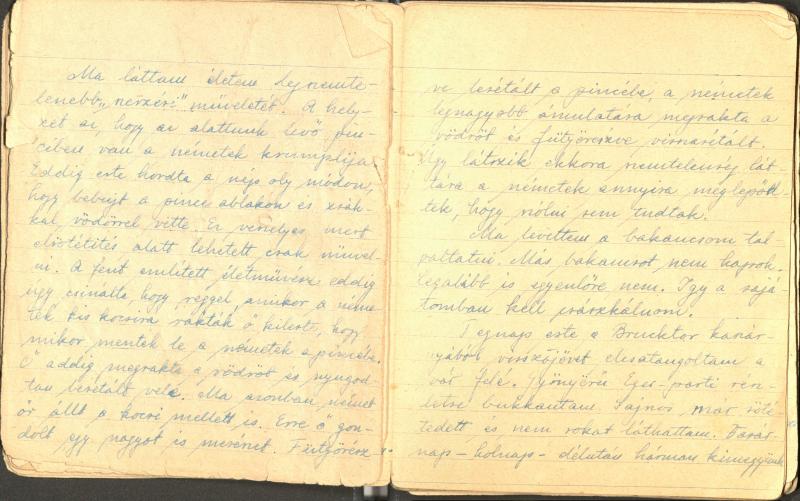 Ma láttam életem legnemte-
lenebb „nerzési" műveletét. A hely-
zet az, hogy az alattunk levő pin-
cében van a németek krumplija
Eddig este hordta a nép oly módon,
hogy bebujt a pince ablakon és zsák-
kal, vödörrel vitte. Ez veszélyes mert
elsötétítés alatt lehetett csak művel-
ni. A fent említett életművész eddig
úgy csinálta, hogy reggel, amikor a néme-
tek kis kocsira rakták ő kileste, hogy
mikor mentek le a németek a pincébe.
Ő addig megrakta a vödröt és nyugod
tan lesétált vele. Ma azonban német
őr állt a kocsi mellett is. Erre ő gon-
dolt egy nagyot is merészet. Fütyörész
ve lesétált a pincébe, a németek
legnagyobb ámulatára megrakta a
vödröt és fütyörészve visszasétált.
Úgy látszik ekkora nemtelenség lát-
tára a németek annyira meglepőd-
tek, hogy szólni sem tudtak.
Ma levittem a bakancsom tal-
paltatni. Más bakancsot nem kapok.
Legalább is egyenlőre nem. Így a sajá-
tomban kell mászkálnom.
Tegnap este a Brucktor kaszár-
nyából visszajövet elcsatangoltam a
vár felé. Gyönyörű Eger-parti rész-
letre bukkantam. Sajnos már söté
tedett és nem sokat láthattam. Vasár-
nap - holnap - délután hárman kimegyünk